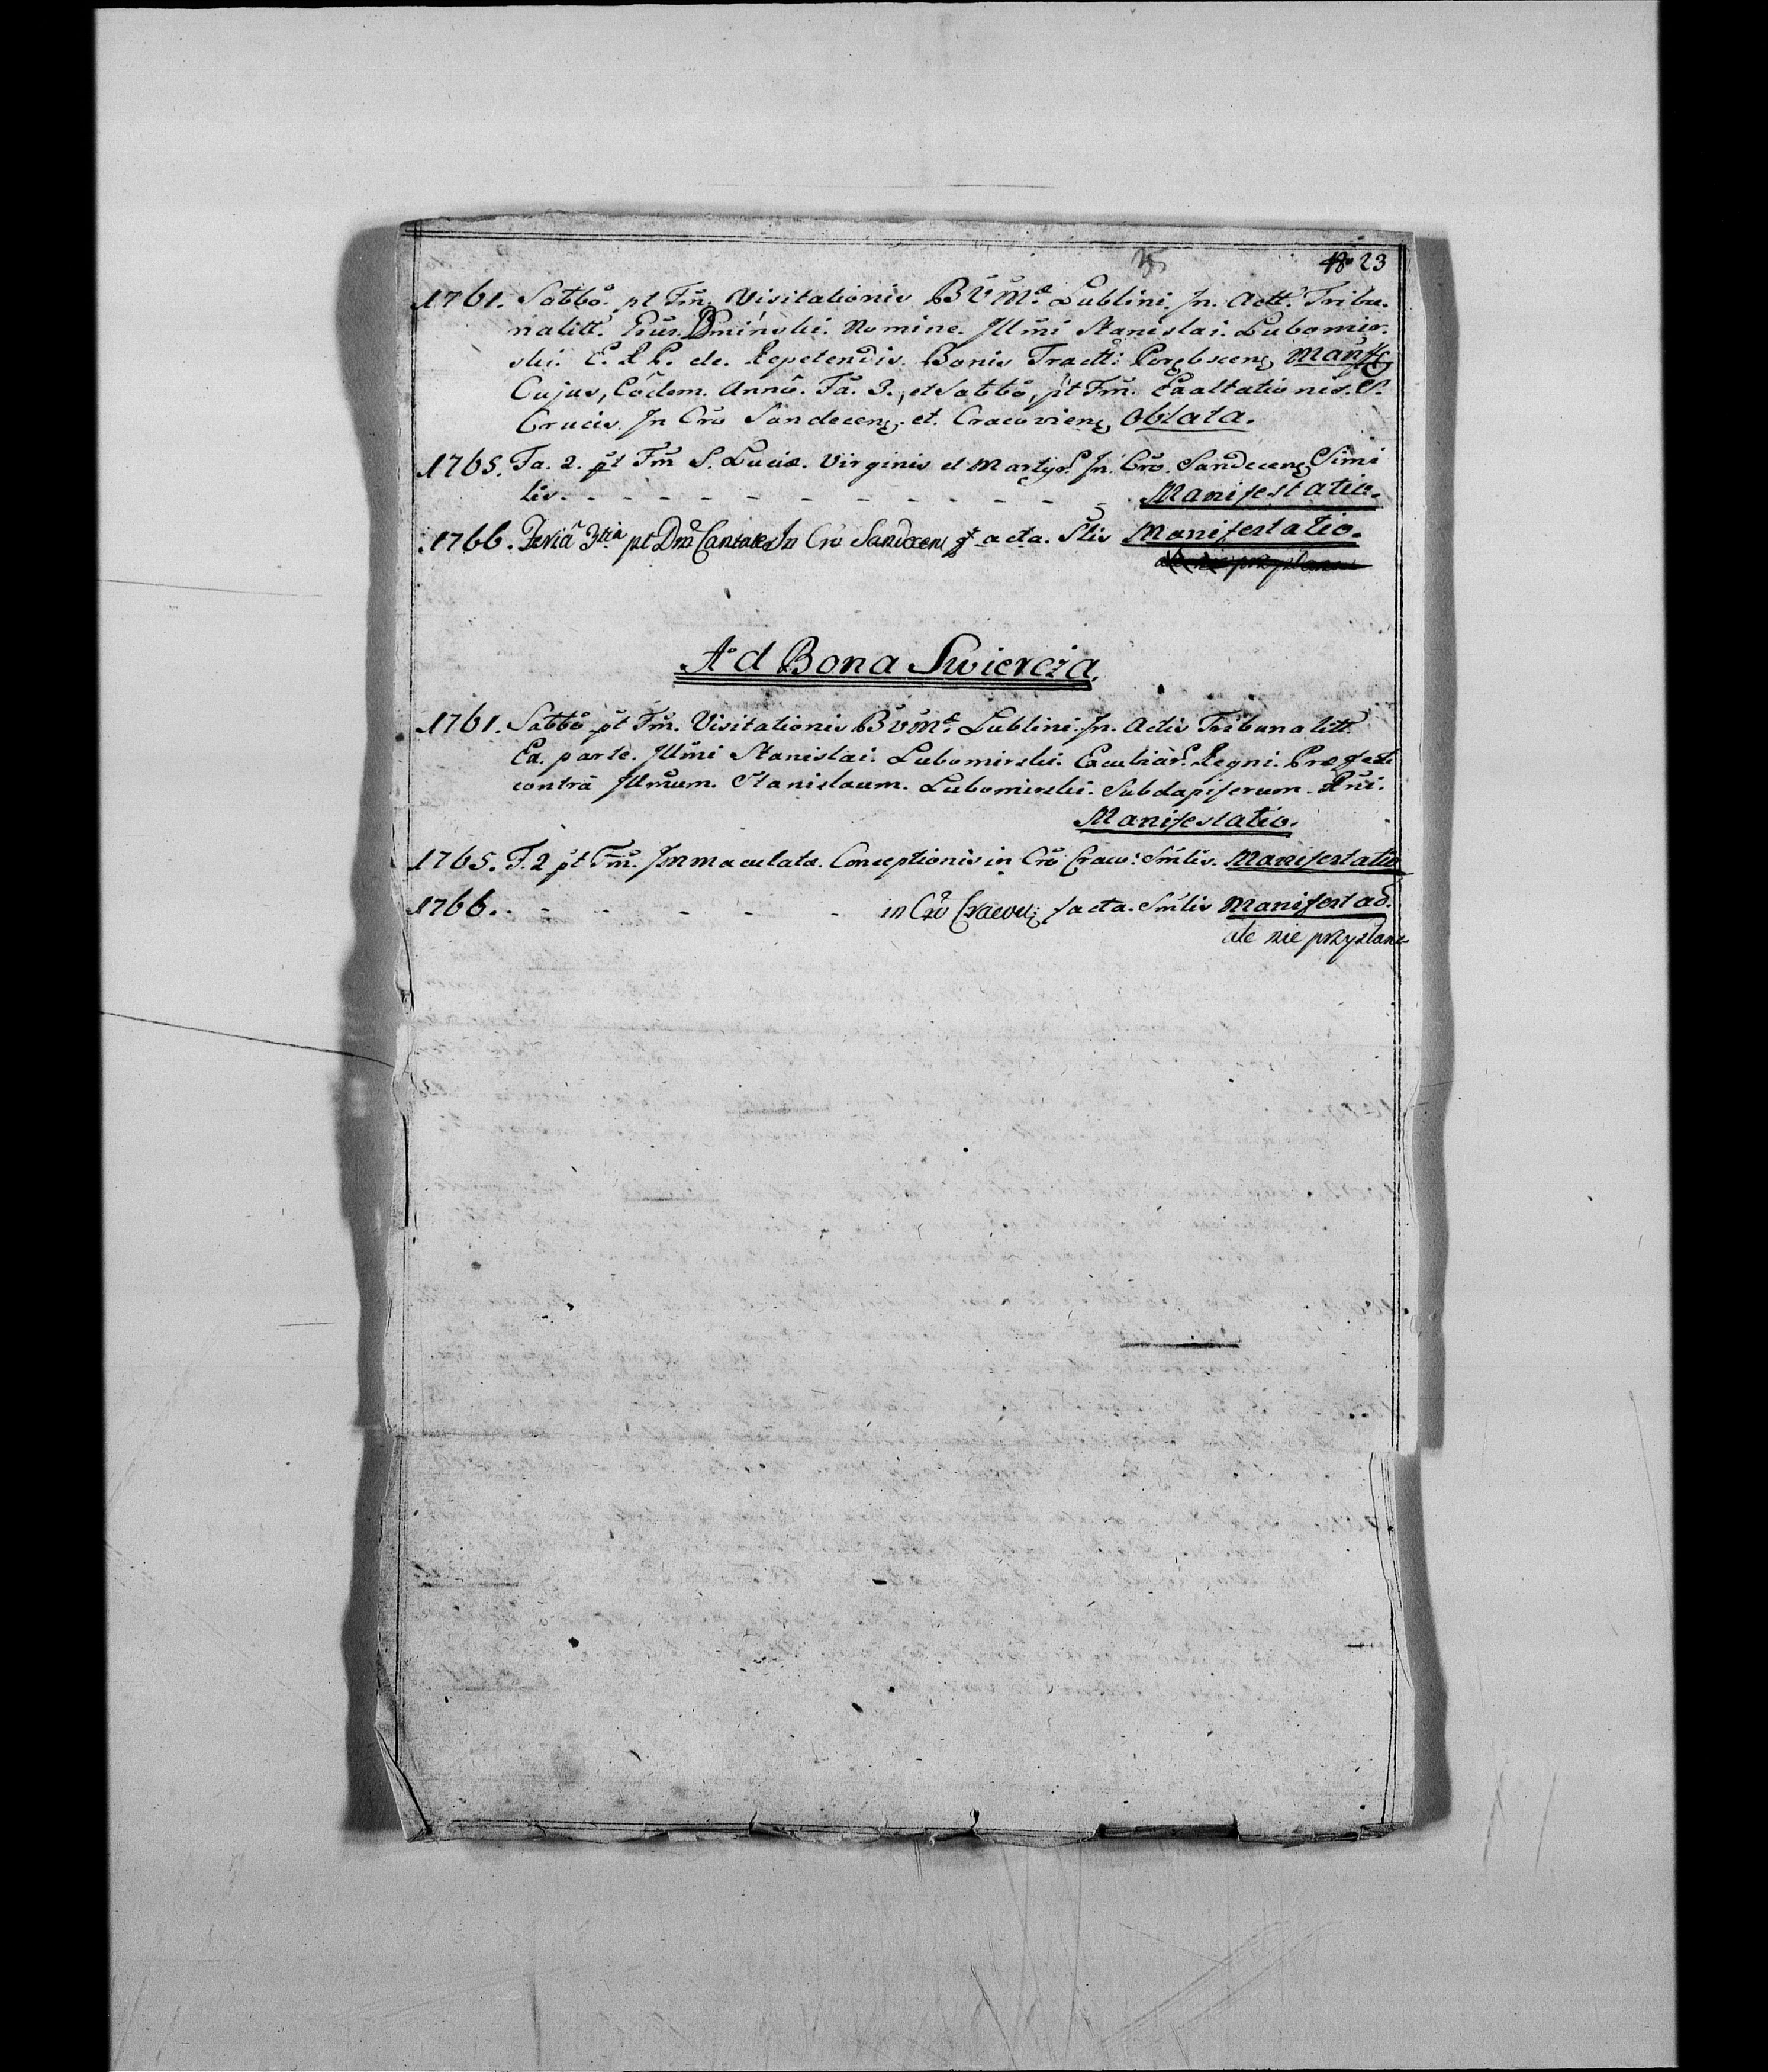 23
1761. Sabbõ. pt Fm̃. Visitationis BVMæ Lublini. In. Actt. Tribu.
nalitt. Nomine. Illmi Stanislai. Lubomir.
ski. E. R. P. de. Repetendis. Bonis Tractt: Porębscens Manff
Cujus, Eõdem. Annô. Fa. 3., et Sabbô, pt Fm̃. Exaltationis. S.
Crucis. In Crõ Sandecens. et. Cracoviens Oblata.
1765. Fa. 2. pt Fm̃ S. Luciæ. Virginis et Martyr. In. Crõ. Sandecens Simi
lis. - - - - - - - - - - - - Manifestatio.
1766. Feriâ 3tia pt Dm̃ Cantate In Crõ Sandecens facta. Slis Manifestatio.
ale nie przysłane
Ad Bona Swiercza.
1761. Sabbõ pt Fm̃. Visitationis BVMæ. Lublini. In. Actis Tribunalitt.
Ex. parte. Illmi Stanislai. Lubomirski. Excubiar. Regni. Præfecti
contrà Illmum. Stanislaum. Lubomirski. Subdapiferum. Rñi.
Manifestatio.
1765. F. 2 pt Fm̃. Immaculatæ. Conceptionis in Crõ Cracov: Smlis. Manifestatio
1766. - - - - - - in Crõ facta. Smlis Manifestaõ.
ale nie przysłane